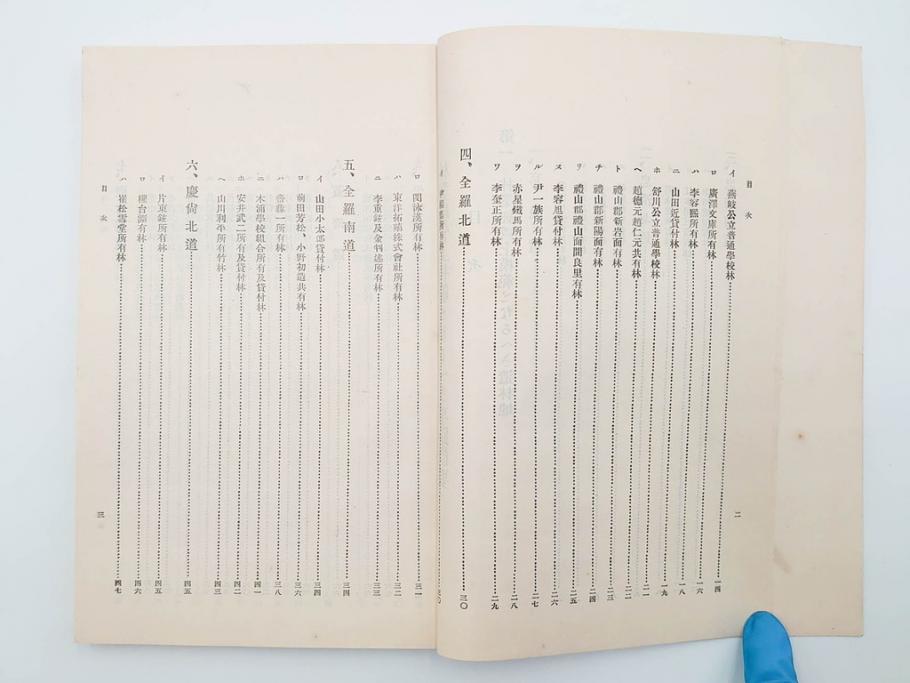 目次
イ 燕岐公立普通學校林……一四
ロ 廣澤文庫所有林
ハ 李容㷩所有林……一六
ニ 山田近貸付林……一八
ホ 舒川公立普通學校林……一九
ヘ 趙德元趙仁元共有林……二一
ト 禮山郡新岩面有林……二二
チ 禮山郡新陽面有林……二四
リ 禮山郡禮山面間良里有林……二五
ヌ 李容旭貸付林……二六
ル 尹一族所有林……二七
ヲ 赤星鐵馬所有林……二八
ワ 李奎正所有林……二九
四、全羅北道……三〇
二
ロ 閔泳漢所有林……三一
ハ 東洋拓殖株式會社所有林……三二
ニ 李重鉉及金炯遙所有林……三三
五、全羅南道……三四
イ 山田小太郎貸付林……三四
ロ 前田芳松、小野初造共有林……三六
ハ 齋藤一所有林……三八
ニ 木浦學校組合所有及貸付林……四一
ホ 安井武二所有及貸付林……四二
ヘ 山川利平所有竹林……四三
六、慶尙北道……四五
イ 片東鉉所有林……四五
ロ 權台淵有林……四六
ハ 崔松雪堂所有林……四七
目次
三